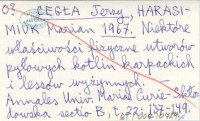 O? CEGŁA Jerzy, HARASI-
MIUK Marian 1967. Niektóre
właściwości fizyczne utworów
pyłowych kotlin karpackich
i lessów wyżynnych.
Annales Univ. Mariae Curie-Skło-
dowska sectio B, t. 22: 137-149.